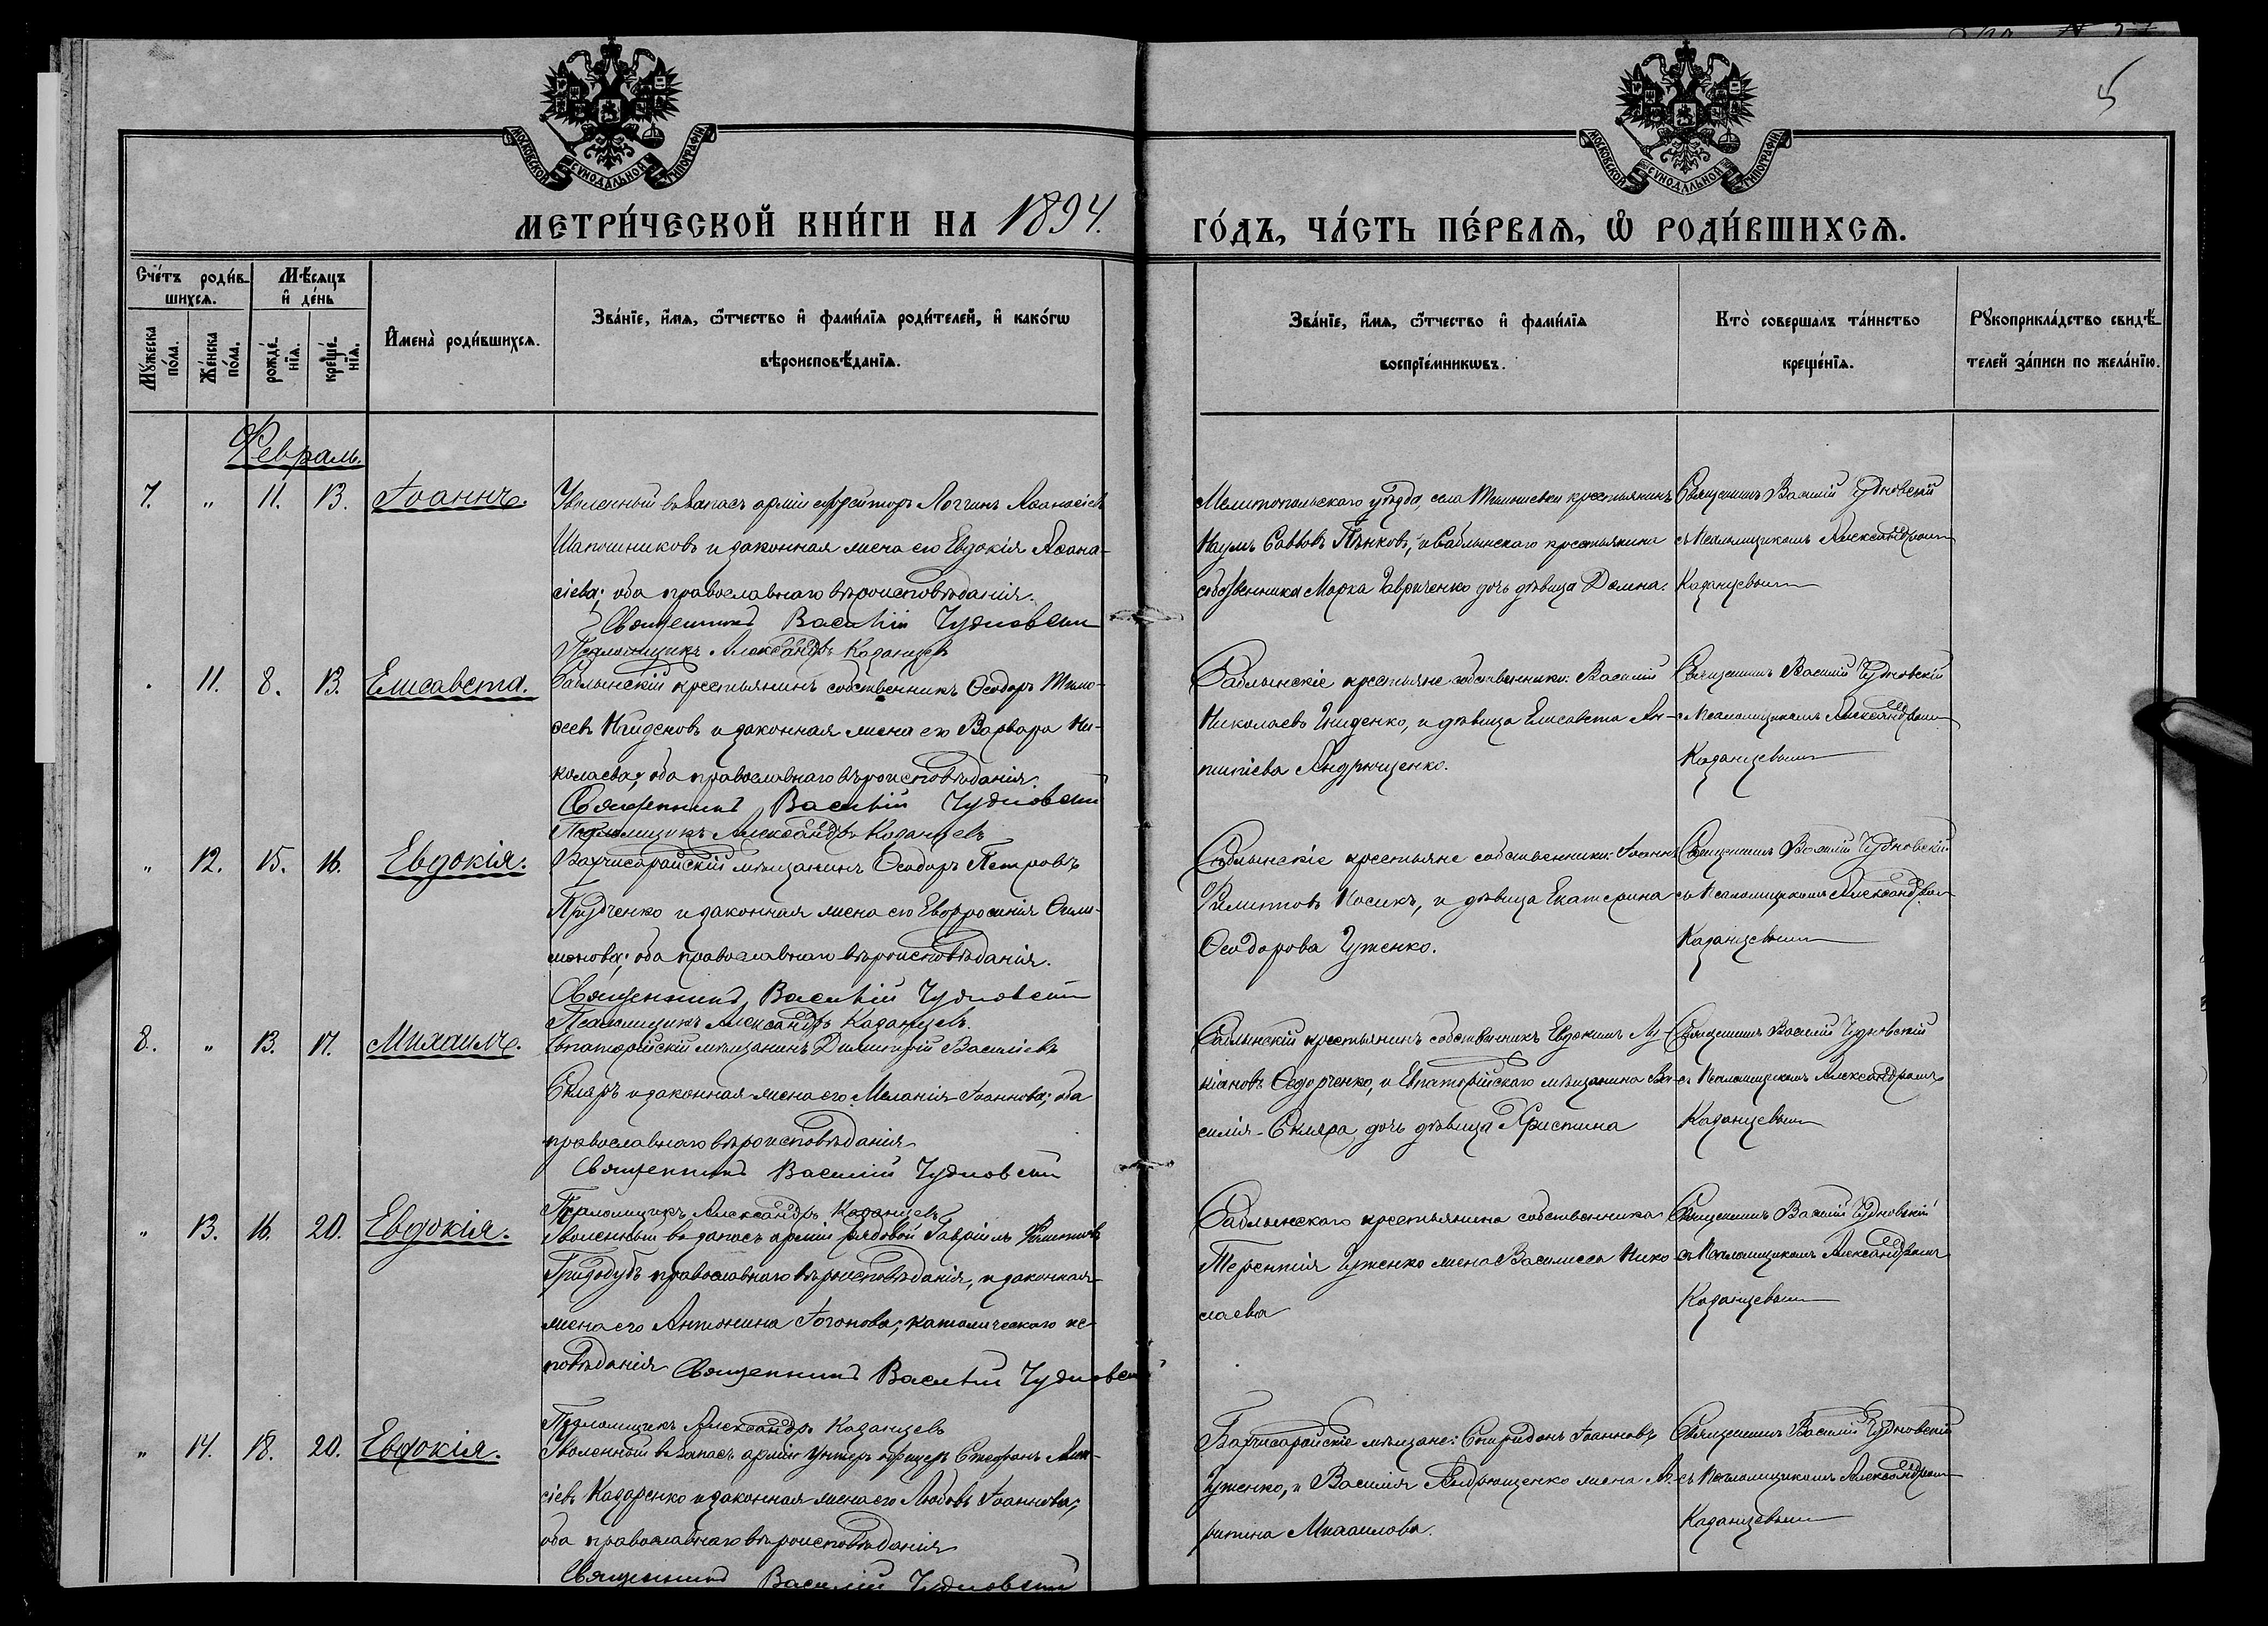 5
МОСКОВСКОЙ СУНОДАЛЬНОЙ ТИПОГРАФІИ
МОСКОВСКОЙ СУНОДАЛЬНОЙ ТИПОГРАФІИ
МЕТРИ́ЧЕСКОЙ КНИ́ГИ НА 1894.
ГО́ДЪ, ЧА́СТЬ ПЕ́РВАѦ, Ѡ РОДИ́ВШИХСѦ.
Сче́тъ роди́в-
шихсѧ.
Мꙋжеска по́ла.
Же́нска по́ла.
Мѣ́сѧцъ
и҆ де́нь
рожде́нїѧ.
креще́нїѧ.
И҆мена̀ роди́вшихсѧ.
Зва́нїе, и҆́мѧ, ѻ҆́тчество и҆ фами́лїѧ роди́телей, и҆ како́гѡ
вѣроисповѣ́данїѧ.
Зва́нїе, и҆́мѧ, ѻ҆́тчество и҆ фами́лїѧ
воспрїе́мникѡвъ.
Кто̀ соверша́лъ та́инство
креще́нїѧ.
Рꙋкоприкла́дство свидѣ́-
телей за́писи по жела́нїю.
Февраль.
7. " 11. 13. Іоаннъ.
Уволенный въ запасъ арміи ефрейторъ Логгинъ Аѳанасіевъ
Шапошниковъ и законная жена его Евдокія Аѳана-
сіева; оба православнаго вѣроисповѣданія.
Священникъ Василій Чудновскій
Псаломщикъ Александръ Казанцевъ
Мелитопольскаго уѣзда, села крестьянинъ
Наумъ Саввовъ Пѣнковъ, и Саблынскаго крестьянина
собственника Марка Гавриченко дочь дѣвица Домна.
Священникъ Василій Чудновскій
съ Псаломщикомъ Александромъ
Казанцевымъ
11. 8. 13. Елисавета.
Саблынскій крестьянинъ собственникъ Ѳеодоръ Тимо-
ѳеевъ и законная жена его Варвара Ни-
колаева; оба православнаго вѣроисповѣданія
Священникъ Василій Чудновскій
Псаломщикъ Александръ Казанцевъ
Саблынскіе крестьяне собственники: Василій
Николаевъ Гниденко, и дѣвица Елисавета Ан-
типіева Андрющенко.
Священникъ Василій Чудновскій
съ Псаломщикомъ Александромъ
Казанцевымъ
" 12. 15. 16. Евдокія.
Бахчисарайскій мѣщанинъ Ѳеодоръ Петровъ
Придченко и законная жена его Евфросинія
оба православнаго вѣроисповѣданія.
Священникъ Василій Чудновскій
Псаломщикъ Александръ Казанцевъ.
Саблынскіе крестьяне собственники: Іоаннъ
Филипповъ Носикъ, и дѣвица Екатерина
Ѳеодорова Цуженко.
Священникъ Василій Чудновскій
съ Псаломщикомъ Александромъ
Казанцевымъ
8. " 13. 17. Михаилъ.
Евпаторійскій мѣщанинъ Димитрій Василіевъ
Скляръ и законная жена его Меланія Іоаннова; оба
православнаго вѣроисповѣданія
Священникъ Василій Чудновскій
Псаломщикъ Александръ Казанцевъ
Саблынскій крестьянинъ собственникъ Евдокимъ Лу-
кіановъ Ѳедорченко, и Евпаторійскаго мѣщанина Ва-
силія Скляра дочь дѣвица Христина
Священникъ Василій Чудновскій
съ Псаломщикомъ Александромъ
Казанцевымъ
" 13. 16. 20. Евдокія.
Уволенный въ запасъ арміи рядовой Гавріилъ Филипповъ
православнаго вѣроисповѣданія, и законная
жена его Антонина католическаго ис-
повѣданія Священникъ Василій Чудновскій
Псаломщикъ Александръ Казанцевъ
Саблынскаго крестьянина собственника
Терентія Цуженко жена Василисса Нико-
лаева
Священникъ Василій Чудновскій
съ Псаломщикомъ Александромъ
Казанцевымъ
" 14. 18. 20. Евдокія.
Уволенный въ запасъ арміи унтеръ офицеръ Стефанъ Алек-
сіевъ Казаренко и законная жена его Любовь Іоаннова;
оба православнаго вѣроисповѣданія
Священникъ Василій Чудновскій
Бахчисарайскіе мѣщане: Спиридонъ Іоанновъ
Цуженко, и Василія Андрющенко жена Ма-
рина Михаилова.
Священникъ Василій Чудновскій
съ Псаломщикомъ Александромъ
Казанцевымъ